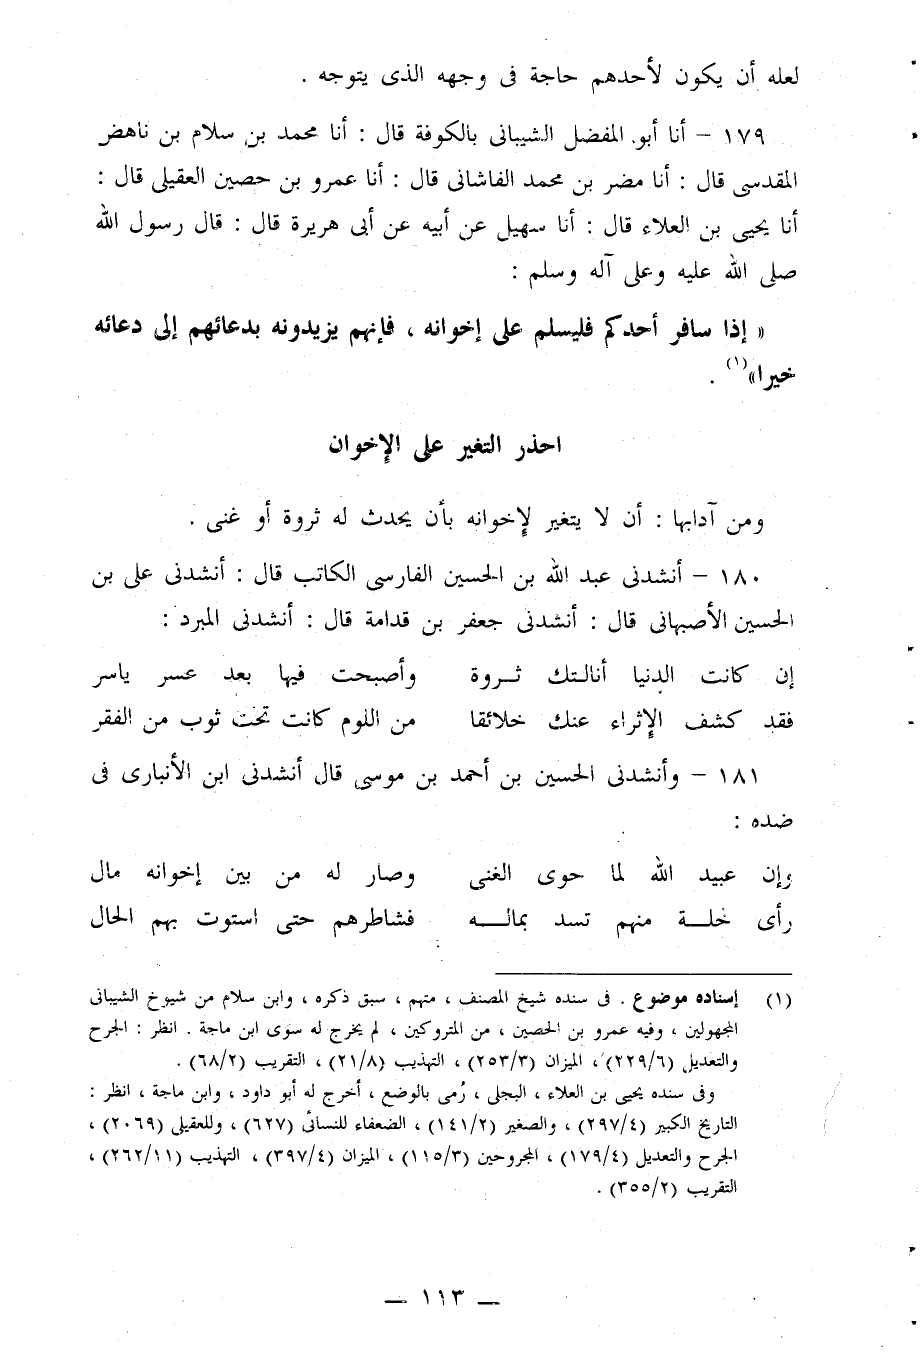 لعله أن يكون لأحدهم حاجة فى وجهه الذى يتوجه .
١٧٩ – أنا أبو المفضل الشيبانى بالكوفة قال : أنا محمد بن سلام بن ناهض
المقدسى قال : أنا مضر بن محمد الفاشانى قال : أنا عمرو بن حصين العقيلى قال :
أنا يحيى بن العلاء قال : أنا سهيل عن أبيه عن أبى هريرة قال : قال رسول الله
صلى الله عليه وعلى آله وسلم :
« إذا سافر أحدكم فليسلم على إخوانه ، فإنهم يزيدونه بدعائهم إلى دعائه
خيرا»(١) .
احذر التغير على الإخوان
ومن آدابها : أن لا يتغير لإخوانه بأن يحدث له ثروة أو غنى .
١٨٠ – أنشدنى عبد الله بن الحسين الفارسى الكاتب قال : أنشدنى على بن
الحسين الأصبهانى قال : أنشدنى جعفر بن قدامة قال : أنشدنى المبرد :
إن كانت الدنيا أنالتك ثروة وأصبحت فيها بعد عسر ياسر
فقد كشف الإثراء عنك خلائقا من اللوم كانت تحت ثوب من الفقر
١٨١ – وأنشدنى الحسين بن أحمد بن موسى قال أنشدنى ابن الأنبارى فى
ضده :
وإن عبيد الله لما حوى الغنى وصار له من بين إخوانه مال
رأى خلة منهم تسد بماله فشاطرهم حتى استوت بهم الحال
(١) إسناده موضوع . فى سنده شيخ المصنف ، متهم ، سبق ذكره ، وابن سلام من شيوخ الشيبانى
المجهولين ، وفيه عمرو بن الحصين ، من المتروكين ، لم يخرج له سوى ابن ماجة . انظر : الجرح
والتعديل (٢٢٩/٦)، الميزان (٢٥٣/٣) ، التهذيب (٢١/٨) ، التقريب (٦٨/٢) .
وفى سنده يحيى بن العلاء ، البجلى ، رُمى بالوضع ، أخرج له أبو داود ، وابن ماجة ، انظر :
التاريخ الكبير (٢٩٧/٤) ، والصغير (١٤١/٢) ، الضعفاء للنسائى (٦٢٧) ، وللعقيلى (٢٠٦٩) ،
الجرح والتعديل (١٧٩/٤) ، المجروحين (١١٥/٣) ، الميزان (٣٩٧/٤) ، التهذيب (٢٦٢/١١) ،
التقريب (٣٥٥/٢) .
– ١١٣ –